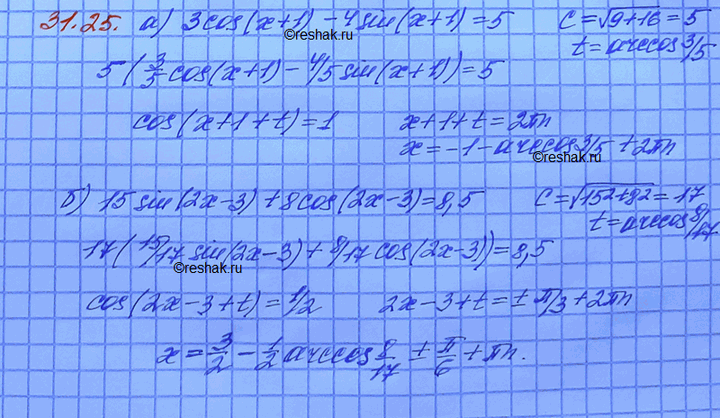 31.25. а) 3cos(x+1) - 4sin(x+1) = 5 c = √9+16 = 5
©reshak.ru
t = arccos 3/5
5(3/5 cos(x+1) - 4/5 sin(x+1)) = 5
cos(x+1+t) = 1 x+1+t = 2πn
x = -1 - arccos 3/5 + 2πn
©reshak.ru
б) 15sin(2x-3) + 8cos(2x-3) = 8,5 c = √15²+82 = 17
t = arccos 8/17
17(15/17 sin(2x-3) + 8/17 cos(2x-3)) = 8,5
©reshak.ru
cos(2x-3+t) = 1/2 2x-3+t = ± π/3 + 2πn
x = 3/2 - 1/2 arccos 8/17 ± π/6 + πn.